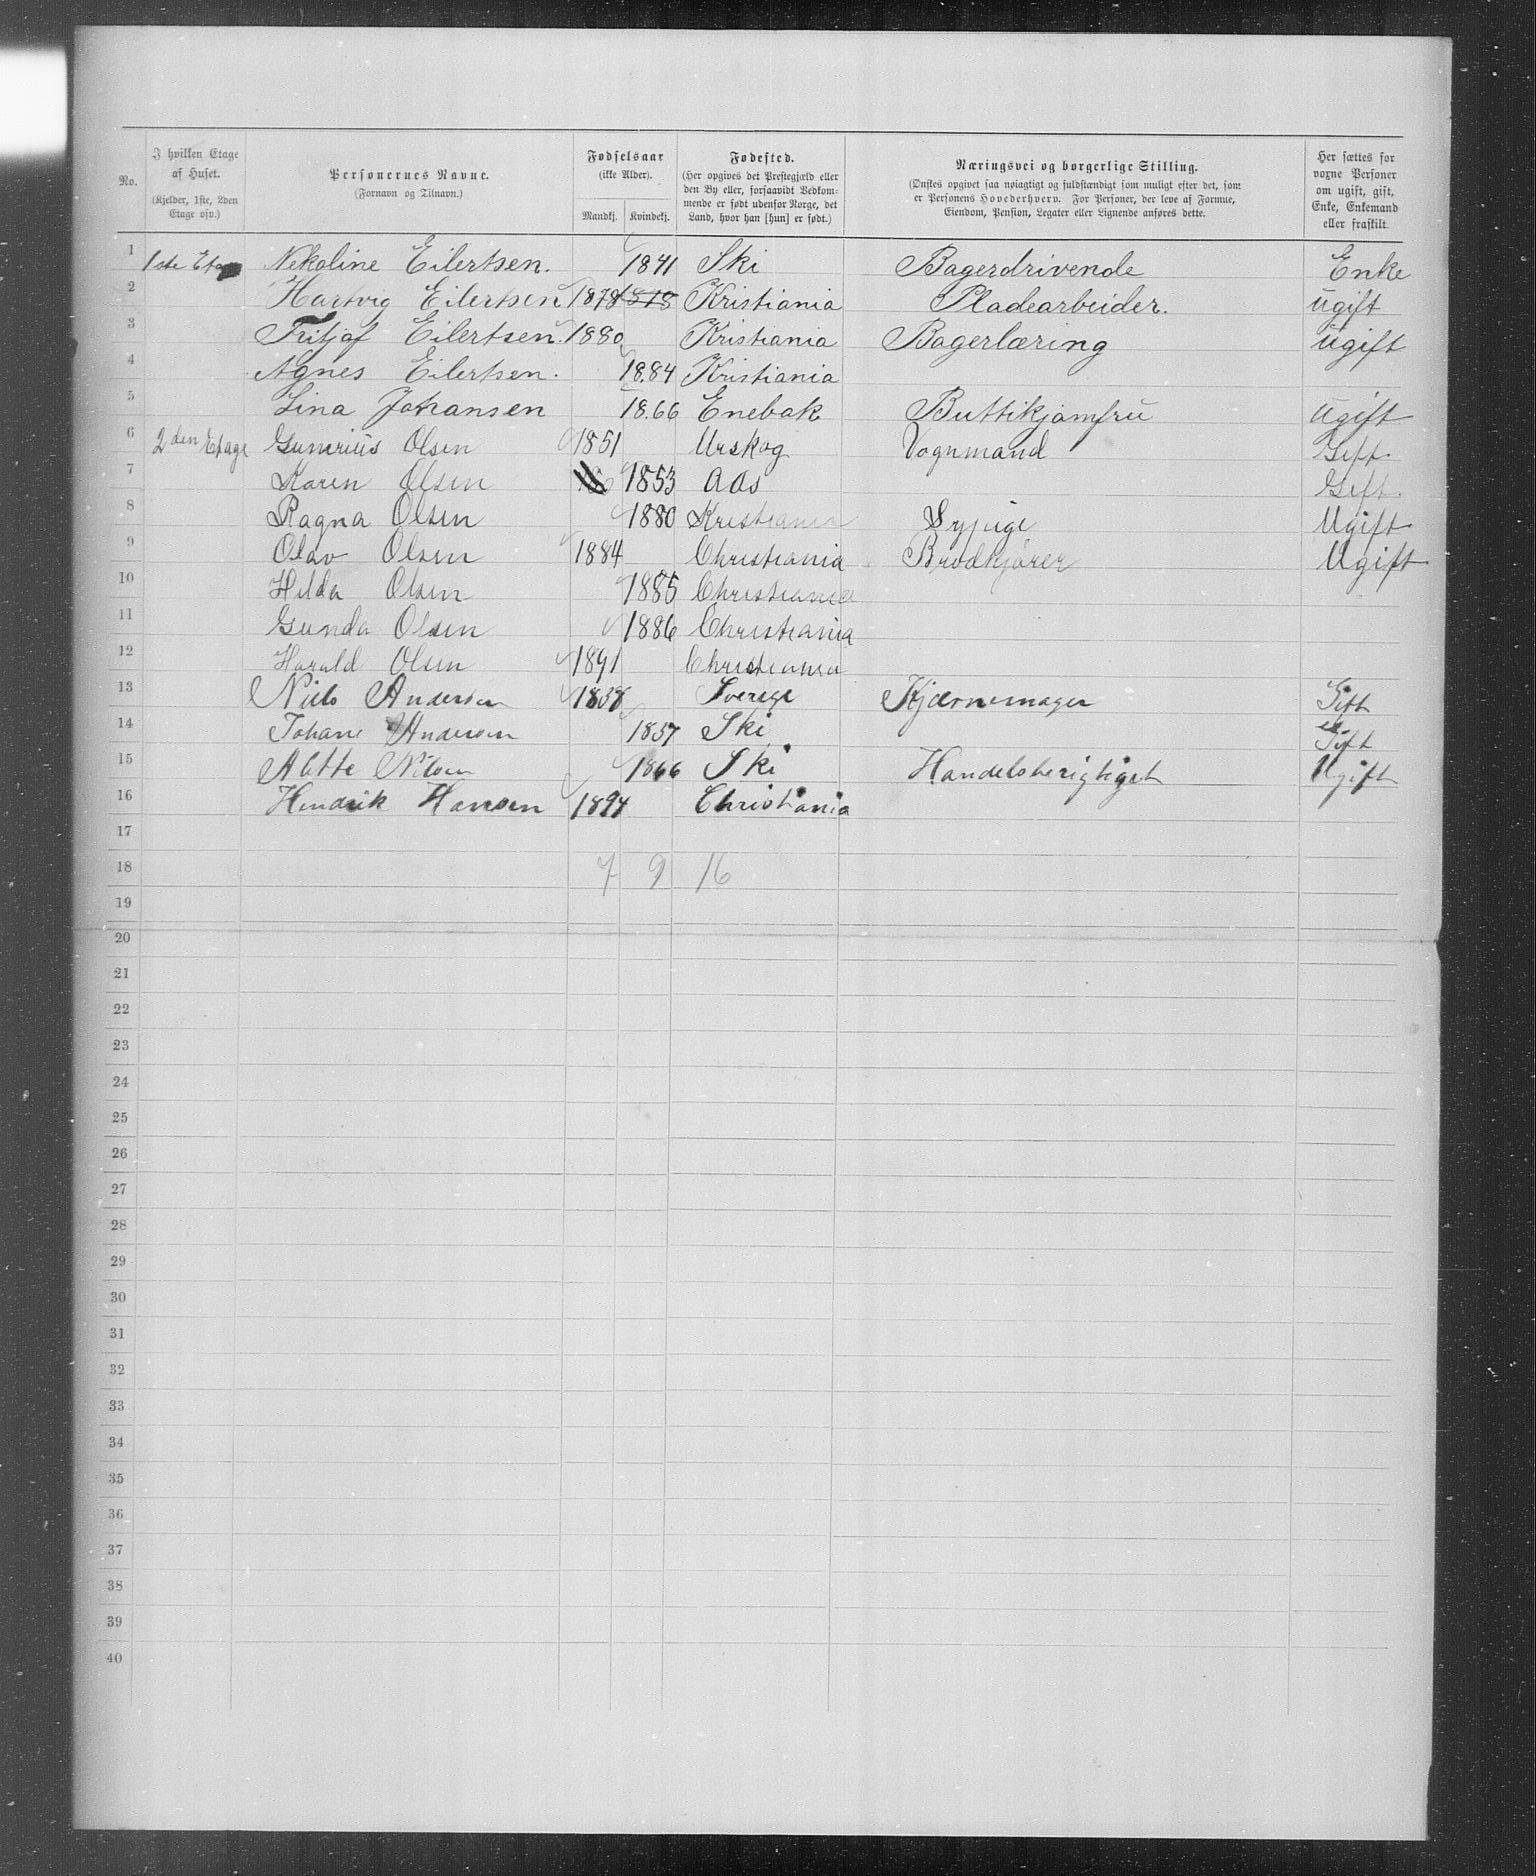 No. | I hvilken Etage af Huset. (Kjelder, 1ste, 2den Etage osv.) | Personernes Navne. (Fornavn og Tilnavn.) | Fødselsaar (ikke Alder). Mandkj. Kvindekj. | Fødested. (Her opgives det Prestegjæld eller den By eller, forsaavidt Vedkommende er født udenfor Norge, det Land, hvor han [hun] er født.) | Næringsvei og borgerlige Stilling. (Ønskes opgivet saa nøiagtigt og fuldstændigt som muligt efter det, som er Personens Hovederhverv. For Personer, der leve af Formue, Eiendom, Pension, Legater eller Lignende anføres dette.) | Her sættes for voxne Personer om ugift, gift, Enke, Enkemand eller fraskilt.
1 1ste Etage Nekoline Eilertsen. 1841 Ski Bagerdrivende Enke
2 Hartvig Eilertsen 1878 Kristiania Pladearbeider. ugift
3 Fritjof Eilertsen. 1880 Kristiania Bagerlæring ugift
4 Agnes Eilertsen. 1884 Kristiania
5 Lina Johansen 1866 Enebak Buttikjomfru ugift
6 2den Etage Gunerius Olsen 1851 Urskog Vognmand Gift
7 Karen Olsen 1853 Aas Gift.
8 Ragna Olsen 1880 Kristiania Sypige Ugift
9 Olav Olsen 1884 Christiania Brødkjører Ugift
10 Hilda Olsen 1885 Christiania
11 Gunda Olsen 1886 Christiania
12 Harald Olsen 1891 Christiania
13 Nils Andersen 1838 Sverige Kjærnemager Gift
14 Johane Andersen 1857 Ski Gift
15 Alette Nilsen 1866 Ski Handelsberigtiget Ugift
16 Hendrik Hansen 1894 Christiania
17
18 7 9 16
19
20
21
22
23
24
25
26
27
28
29
30
31
32
33
34
35
36
37
38
39
40